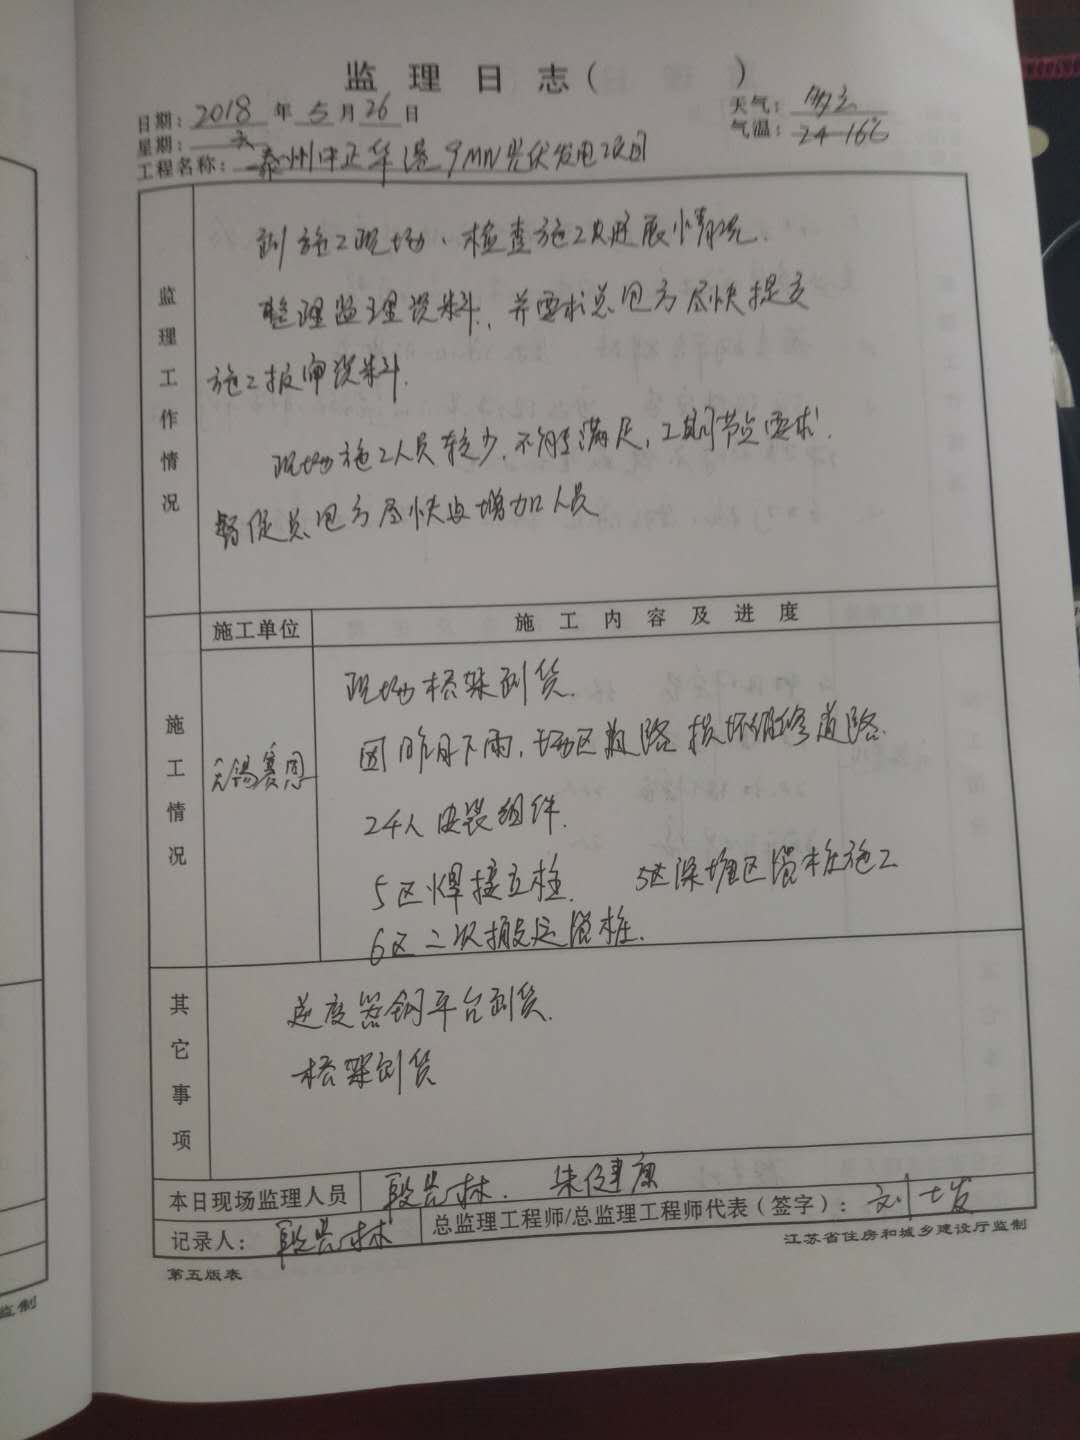 监理日志( )
日期：2018年5月26日
天气：多云
星期：六
气温：24-16℃
工程名称：泰州中正华港9MW光伏发电项目
监理工作情况
到施工现场、检查施工进展情况.
整理监理资料，并要求总包方尽快提交
施工报审资料.
现场施工人员较少,不能满足,工期节点要求.
督促总包方尽快增加人员
施工情况
施工单位
施工内容及进度
无锡赛恩
现场桥架到货.
因昨日下雨,场区道路损坏维修道路.
24人安装组件.
5区焊接立柱. 5区深塘区管桩施工
6区二次搬运管桩.
其它事项
逆变器钢平台到货.
桥架到货
本日现场监理人员
段 林. 朱健康
记录人：段 林
总监理工程师/总监理工程师代表（签字）：刘
江苏省住房和城乡建设厅监制
第五版表
监制